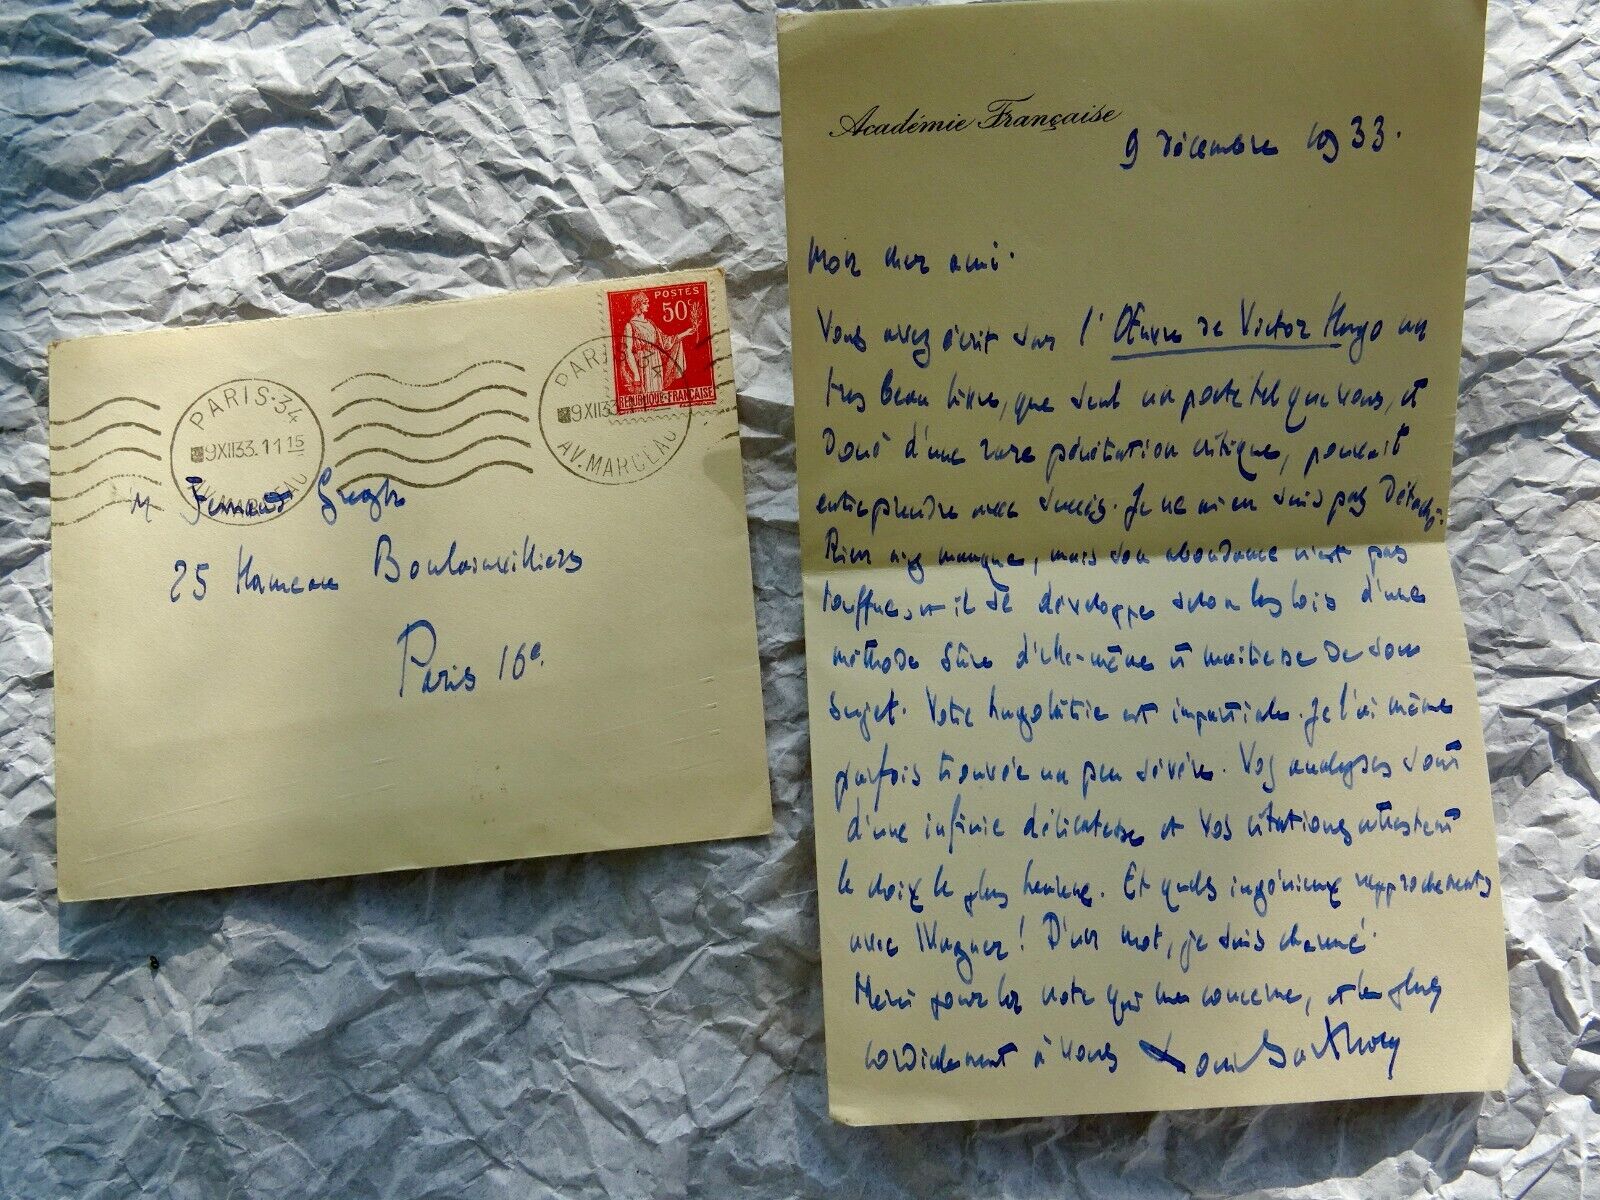 PARIS·34
9XII33·11 15
AV. MARCEAU
PARIS·34
9XII33
AV. MARCEAU
POSTES
50c
REPUBLIQUE·FRANÇAISE
M Fernand Gregh
25 Hameau Boulainvilliers
Paris 16e.
Académie Française
9 décembre 1933.
Mon cher ami.
Vous avez écrit sur l'Œuvre de Victor Hugo un
très beau livre, que seul un poète tel que vous, et
doué d'une rare pénétration critique, pouvait
entreprendre avec succès. Je ne m'en suis pas détaché.
Rien n'y manque, mais son abondance n'est pas
touffue, et il se développe selon les lois d'une
méthode sûre d'elle-même et maîtresse de son
sujet. Votre hugolâtrie est impartiale. Je l'ai même
parfois trouvée un peu sévère. Vos analyses sont
d'une infinie délicatesse et vos citations attestent
le choix le plus heureux. Et quels ingénieux rapprochements
avec Wagner ! D'un mot, je suis charmé.
Merci pour la note qui me concerne, et les plus
cordialement à vous Louis Barthou